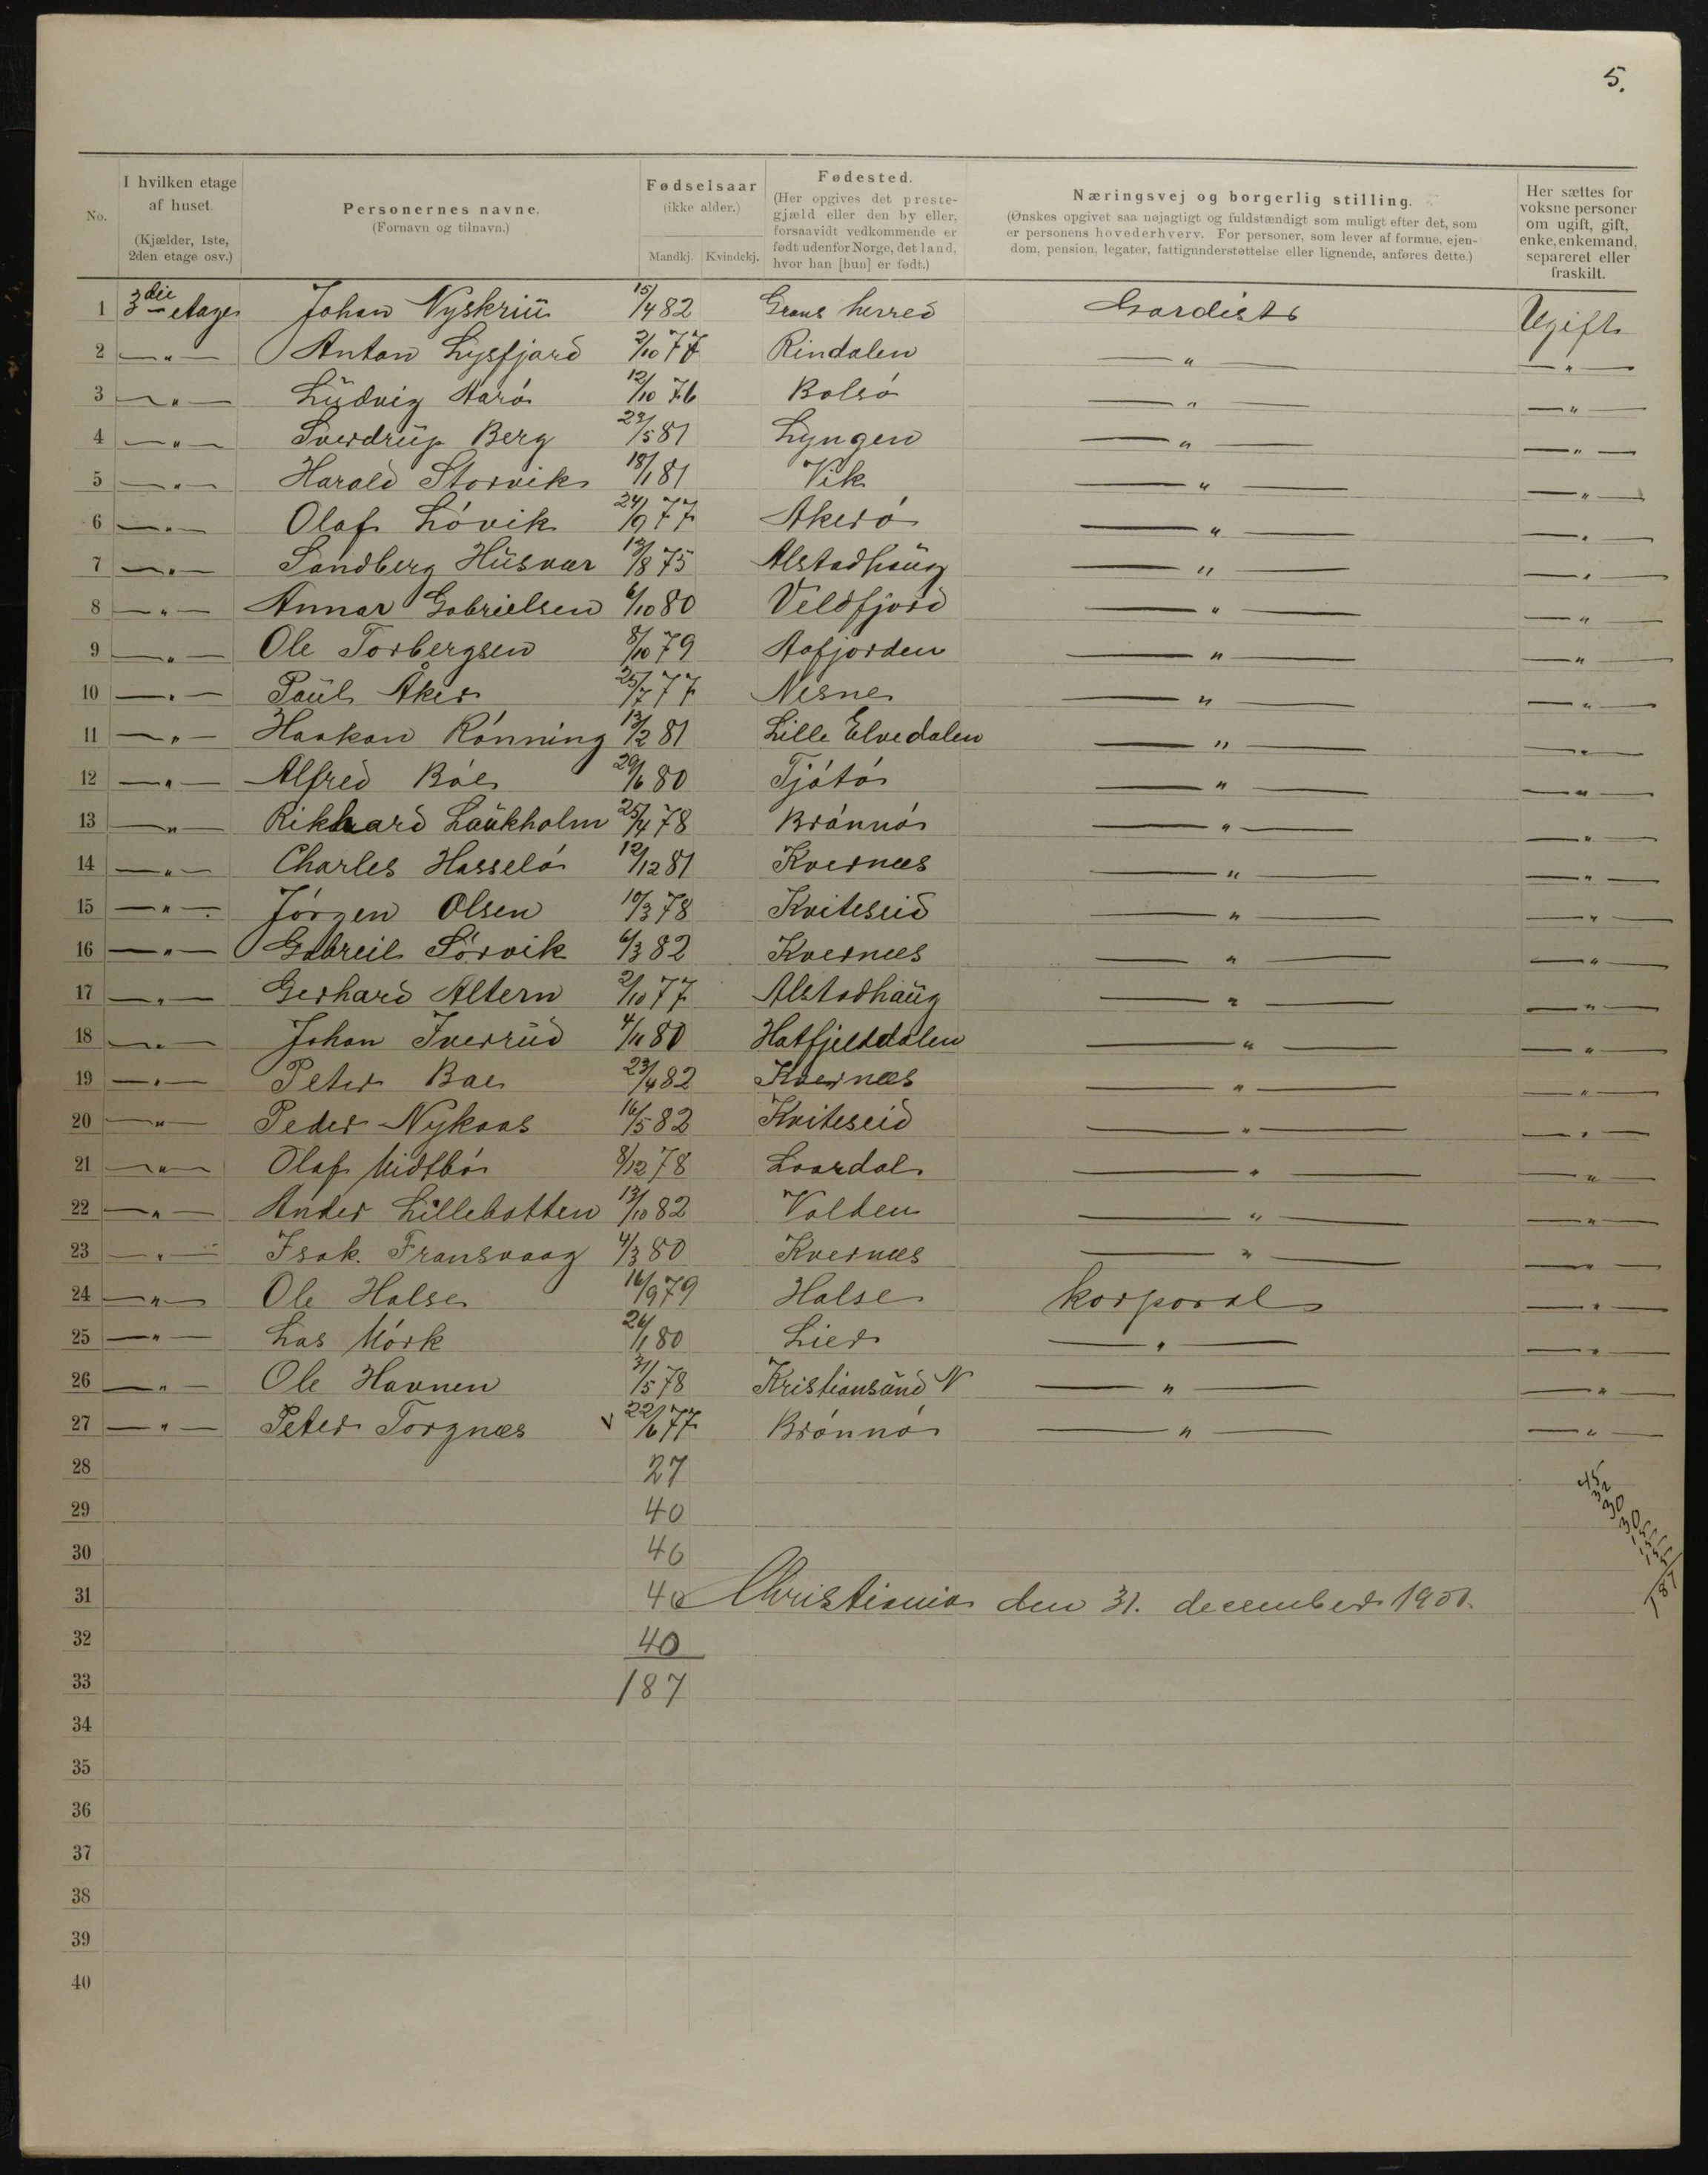 5.
No. I hvilken etage af huset. (Kjælder, 1ste, 2den etage osv.) Personernes navne. (Fornavn og tilnavn.) Fødselsaar (ikke alder.) Mandkj. Kvindekj. Fødested. (Her opgives det prestegjæld eller den by eller, forsaavidt vedkommende er født udenfor Norge, det land, hvor han [hun] er født.) Næringsvej og borgerlig stilling. (Ønskes opgivet saa nøjagtigt og fuldstændigt som muligt efter det, som er personens hovederhverv. For personer, som lever af formue, ejendom, pension, legater, fattigunderstøttelse eller lignende, anføres dette.) Her sættes for voksne personer om ugift, gift, enke, enkemand, separeret eller fraskilt.
1 3die etage Johan Nyskriü 15/4 82 Grans herred Gardist Ugift
2 —"— Anton Lysfjord 2/10 77 Rindalen —"— —"—
3 —"— Lüdvig Aarö 12/10 76 Bolsö —"— —"—
4 —"— Sverdrüp Berg 23/5 81 Lyngen —"— —"—
5 —"— Harald Storvik 18/1 81 Vik —"— —"—
6 —"— Olaf Lövik 24/9 77 Akerö —"— —"—
7 —"— Sandberg Hüsvær 13/8 75 Alstadhaüg —"— —"—
8 —"— Annar Gabrielsen 6/10 80 Velfjord —"— —"—
9 —"— Ole Torbergsen 8/10 79 Aafjorden —"— —"—
10 —"— Paül Åker 25/7 77 Nesne —"— —"—
11 —"— Haakon Rönning 13/2 81 Lille Elvedalen —"— —"—
12 —"— Alfred Böe 29/6 80 Tjötö —"— —"—
13 —"— Rikhard Laükholm 25/4 78 Brönnö —"— —"—
14 —"— Charles Hasselö 12/12 81 Kvernæs —"— —"—
15 —"— Jörgen Olsen 10/3 78 Kviteseid —"— —"—
16 —"— Gabreil Sörvik 6/3 82 Kvernæs —"— —"—
17 —"— Gerhard Altern 2/10 77 Alstadhaüg —"— —"—
18 —"— Johan Iverrüd 4/11 80 Hatfjelddalen —"— —"—
19 —"— Peter Bae 23/4 82 Kvernæs —"— —"—
20 —"— Peder Nykaas 16/5 82 Kviteseid —"— —"—
21 —"— Olaf Midtbö 8/12 78 Laardal —"— —"—
22 —"— Ander Lillebotten 13/10 82 Volden —"— —"—
23 —"— Isak. Fransvaag 4/3 80 Kvernæs —"— —"—
24 —"— Ole Halse 16/9 79 Halse korporal —"—
25 —"— Las Mörk 26/1 80 Lier —"— —"—
26 —"— Ole Havnen 31/5 78 Kristiansünd N —"— —"—
27 —"— Peter Torgnæs v 22/6 77 Brönnö —"— —"—
28 27
29 40
30 40
31 40 Christiania den 31. december 1901.
32 40
33 187
34
35
36
37
38
39
40
45
32
30
30
187